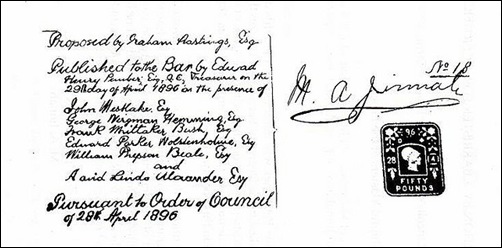 Proposed by Graham Hastings, Esq
Published to the Bar by Edward
Henry Pember Esq, Q.C, Treasurer on the
29th day of April 1896 in the presence of
John Westlake, Esq
George Wirgman Hemming, Esq
Frank Whittaker Bush, Esq
Edward Parker Wolstenholme, Esq
William Phipson Beale, Esq
and
David Lindo Alexander Esq
Pursuant to Order of Council
of 28th April 1896
No 18
M. A Jinnah
96
28 4
FIFTY
POUNDS